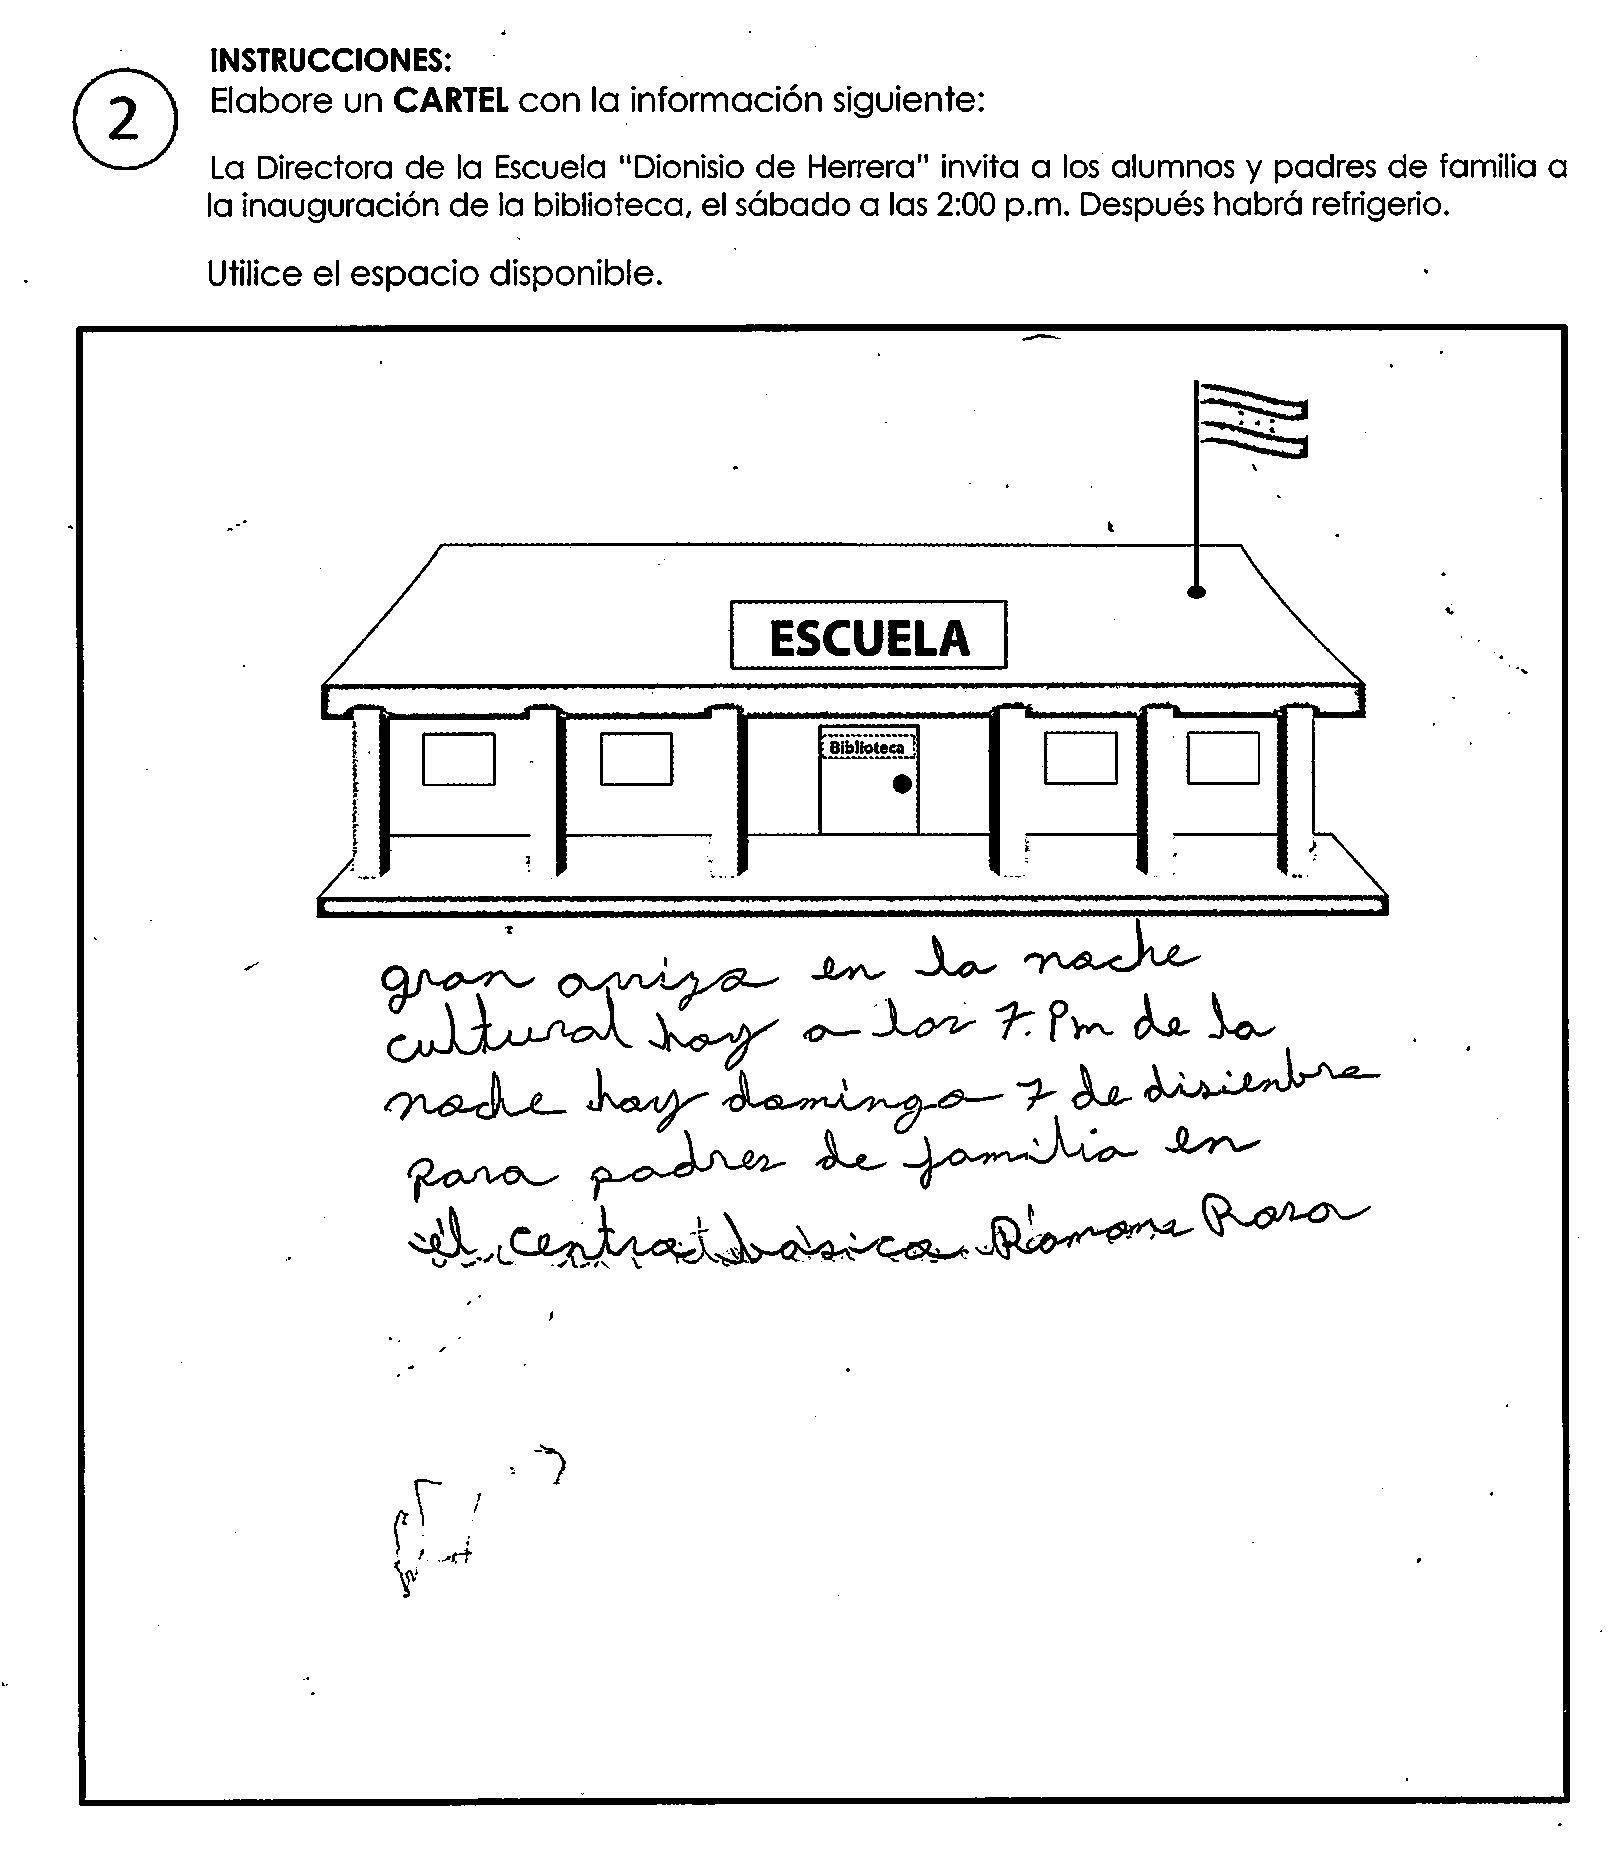 INSTRUCCIONES:
2
Elabore un CARTEL con la información siguiente:
La Directora de la Escuela "Dionisio de Herrera" invita a los alumnos y padres de familia a
la inauguración de la biblioteca, el sábado a las 2:00 p.m. Después habrá refrigerio.
Utilice el espacio disponible.
ESCUELA
Biblioteca
gran avizo en la noche
cultural hoy a las 7. Pm de la
noche hoy domingo 7 de disienbre
para padres de familia en
el centro basico Ramona Rosa